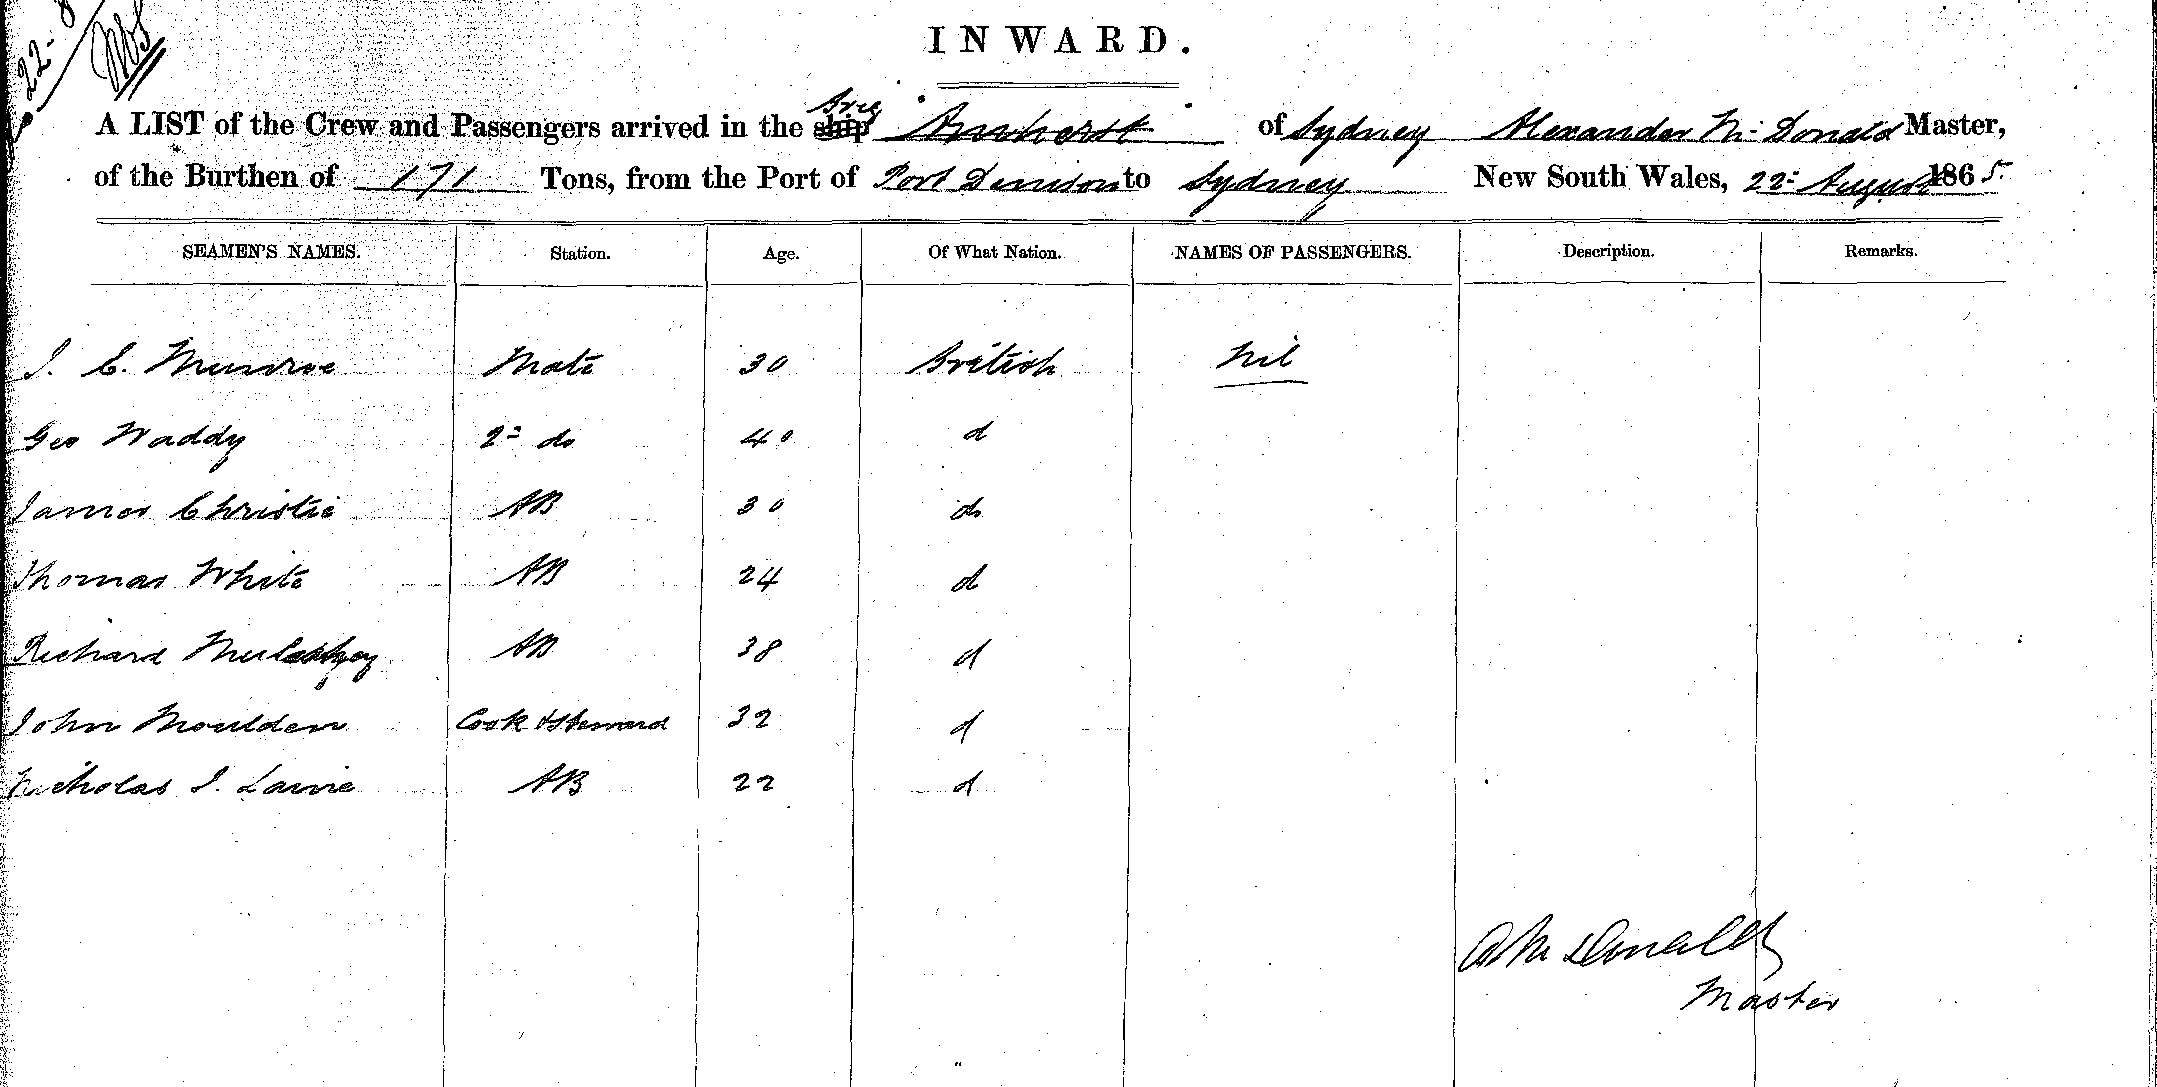 22-8
INWARD.
A LIST of the Crew and Passengers arrived in the ship Brig Amherst of Sydney Alexander Mc Donald Master,
of the Burthen of 171 Tons, from the Port of Port Denison to Sydney New South Wales, 22: August 1865.
SEAMEN'S NAMES. Station. Age. Of What Nation. NAMES OF PASSENGERS. Description. Remarks.
J. C. Munroe Mate 30 British Nil
Geo Waddy 2: do 40 d
James Christie AB 30 do
Thomas White AB 24 d
Richard AB 38 d
John Moulden Cook & Steward 32 d
Nicholas J. Laurie AB 22 d
A Mc Donald
Master